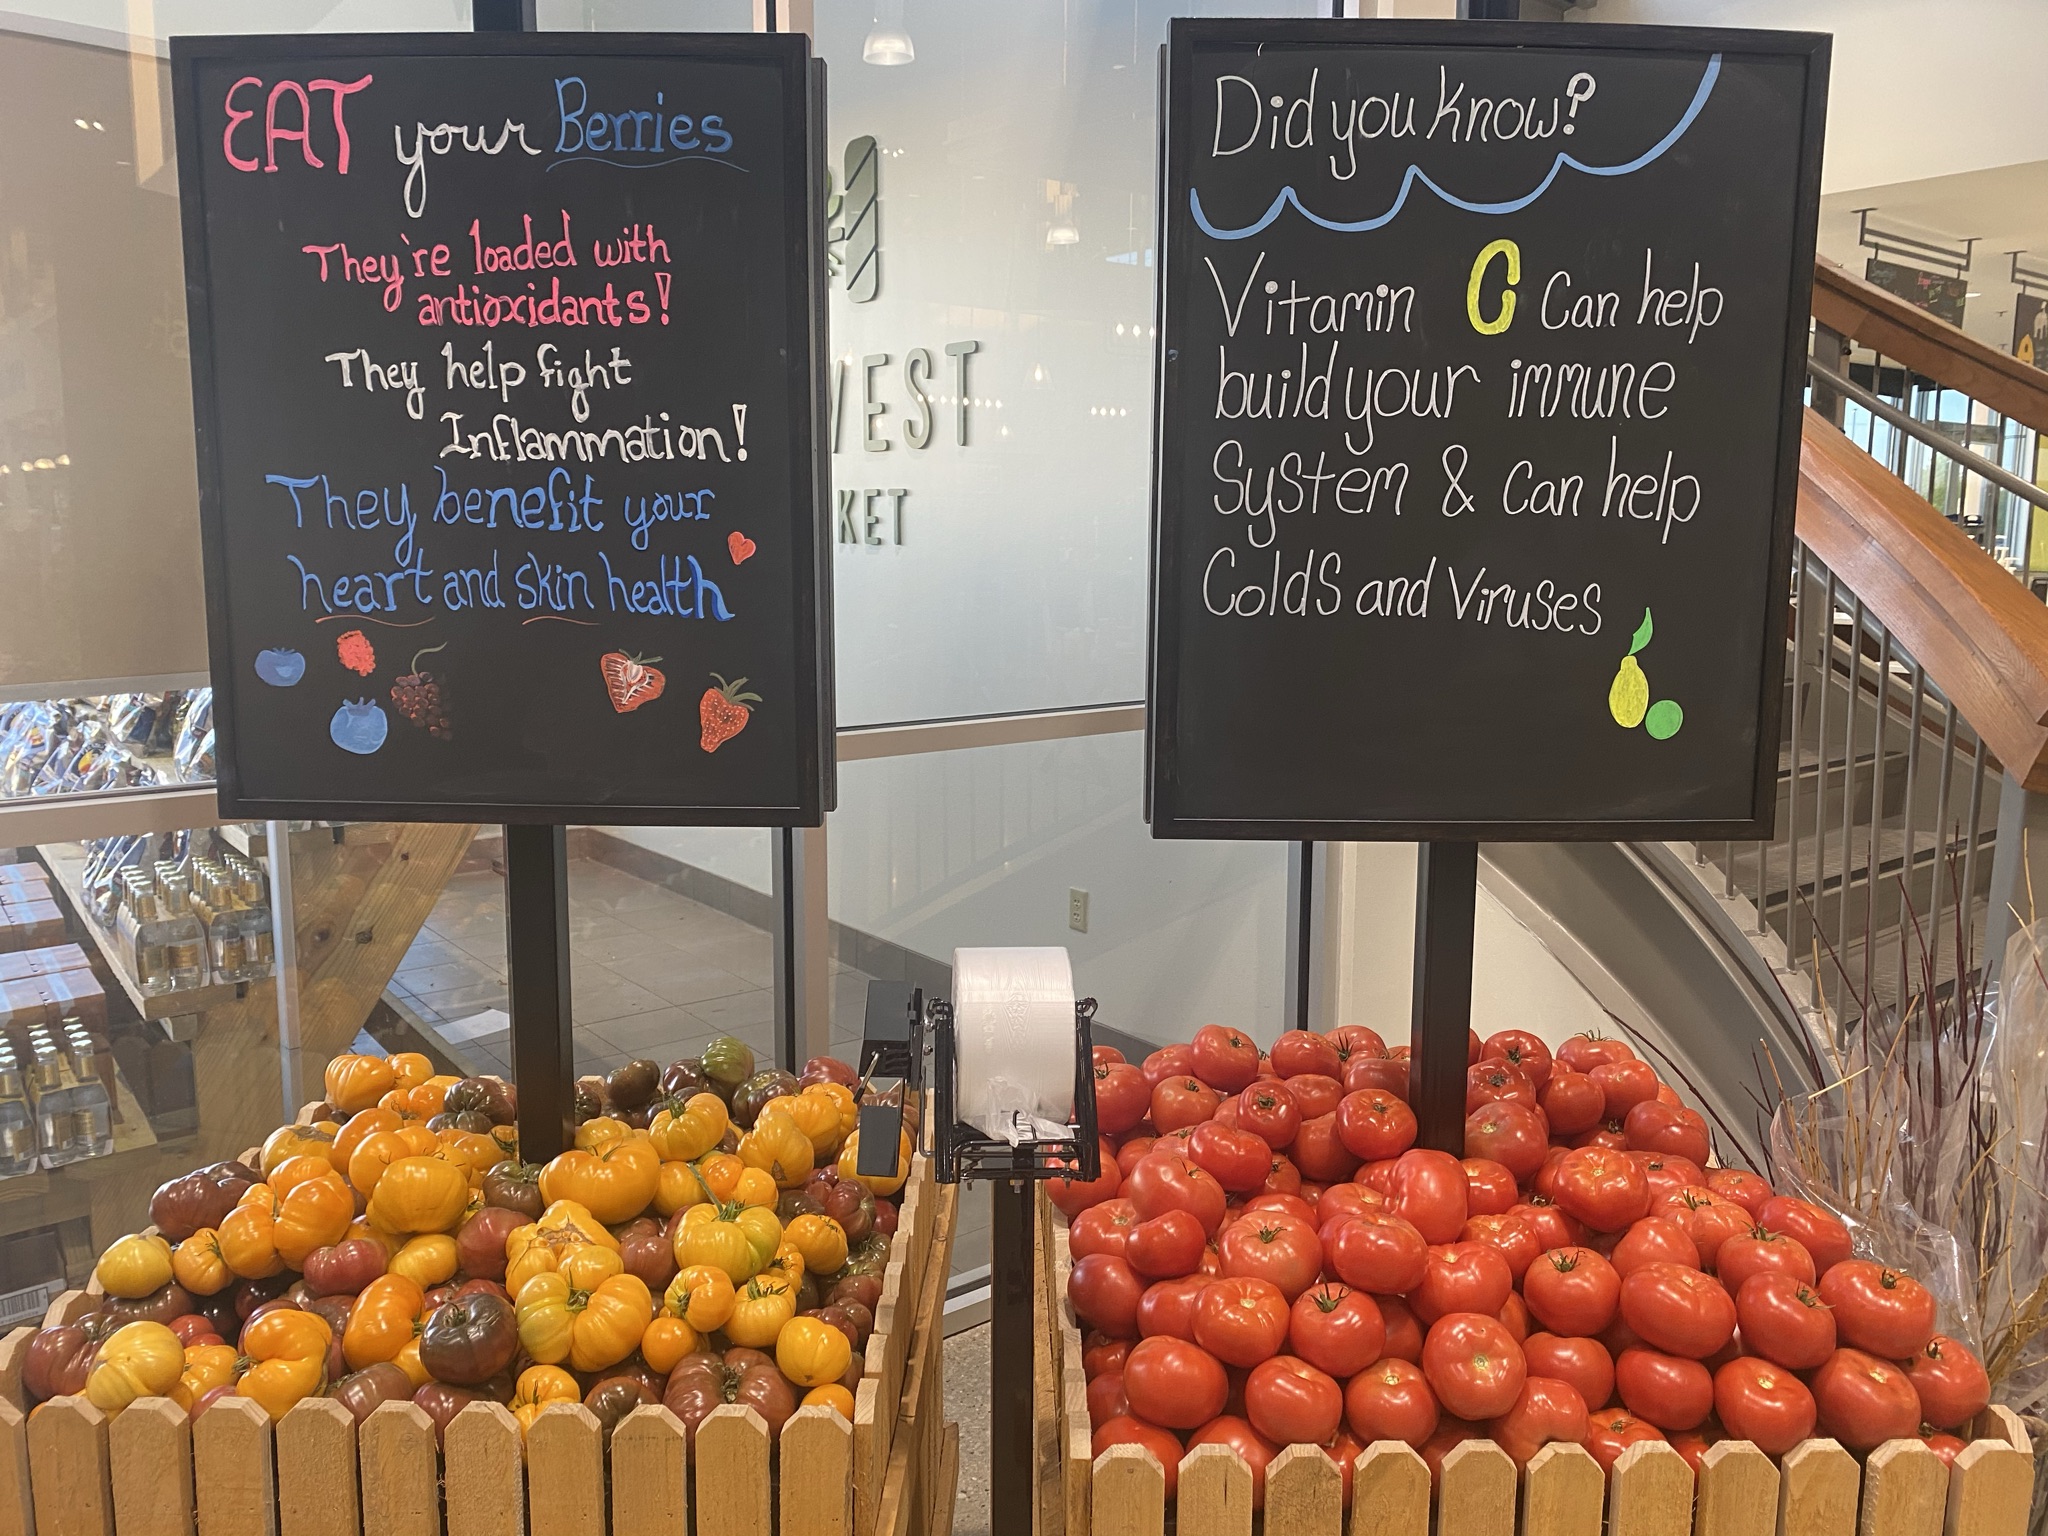 EAT your Berries
They're loaded with
antioxidants!
They help fight
Inflammation!
They benefit your
heart and skin health
VEST
KET
Did you know?
Vitamin C Can help
build your immune
System & Can help
Colds and Viruses